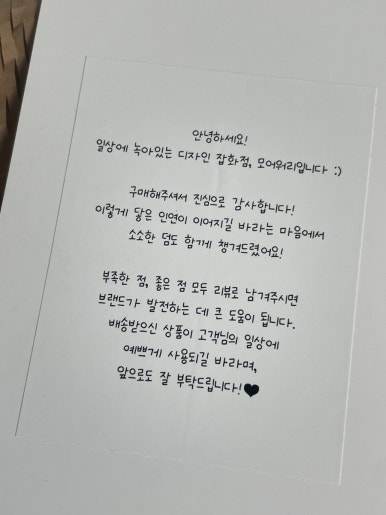 안녕하세요!
일상에 녹아있는 디자인 잡화점, 모어워리입니다 :)
구매해주셔서 진심으로 감사합니다!
이렇게 닿은 인연이 이어지길 바라는 마음에서
소소한 덤도 함께 챙겨드렸어요!
부족한 점, 좋은 점 모두 리뷰로 남겨주시면
브랜드가 발전하는 데 큰 도움이 됩니다.
배송받으신 상품이 고객님의 일상에
예쁘게 사용되길 바라며,
앞으로도 잘 부탁드립니다!♥